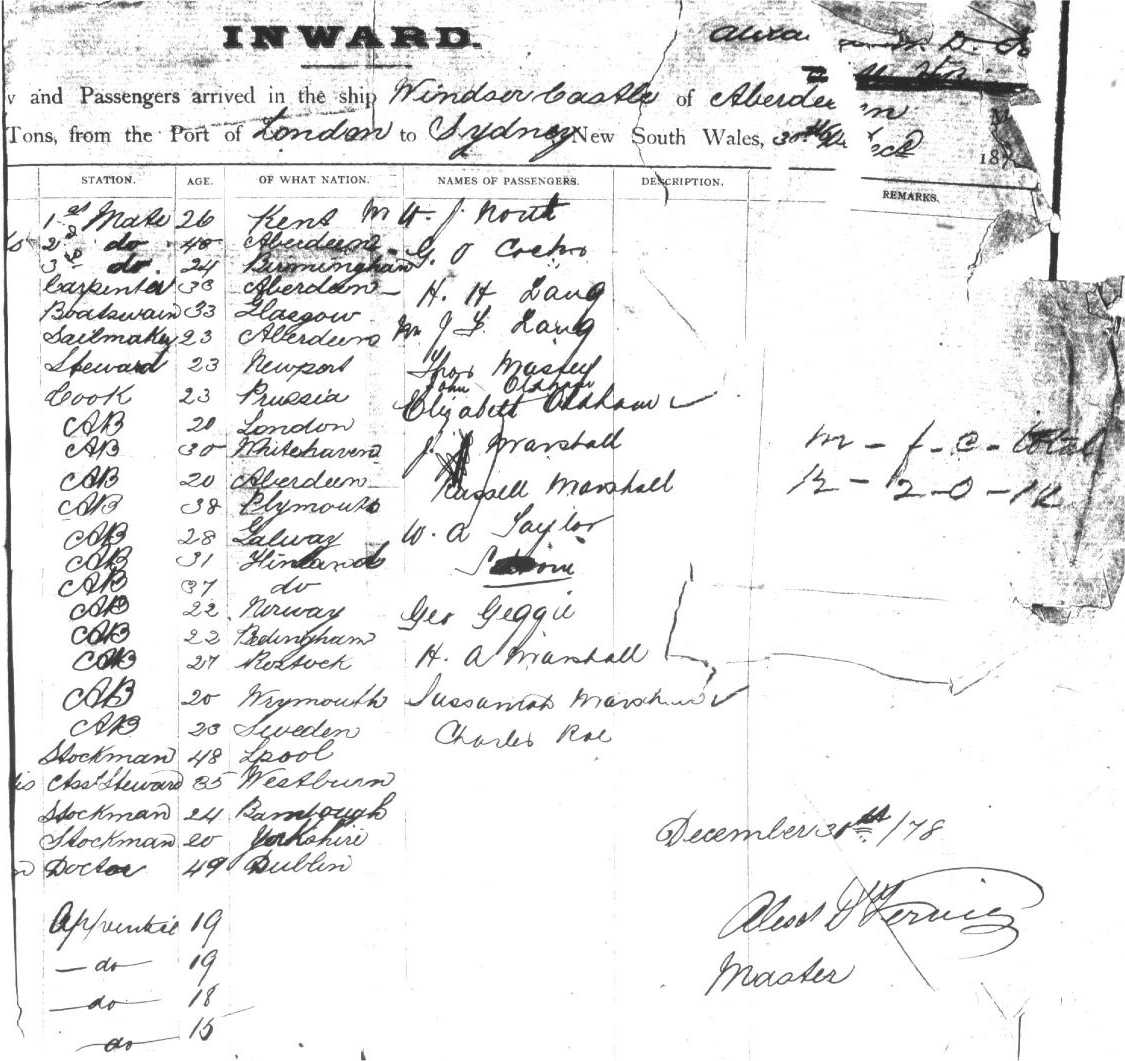 INWARD.
and Passengers arrived in the ship Windsor Castle of Aberdeen
Tons, from the Port of London to Sydney New South Wales, 30th Dec 187
STATION. AGE. OF WHAT NATION. NAMES OF PASSENGERS. DESCRIPTION. REMARKS.
1st Mate 26 Kent W. J. North
2d do 48 Aberdeen G. O
3d do. 24 Birmingham
Carpenter 33 Aberdeen H. H
Boatswain 33 Glasgow
Sailmaker 23 Aberdeen
Steward 23 Newport Thos Massey
John Oldham
Cook 23 Prussia Elizabeth Oldham
AB 20 London
AB 30 Whitehaven J. Marshall m - f - c - total
AB 20 Aberdeen Russell Marshall 12 - 2 - 0 - 14
AB 38 Plymouth
AB 28 Galway W. A Taylor
AB 31 Finland
AB 37 do
AB 22 Norway Geo Geggie
AB 22 Bedingham
AB 27 Rostock H. A Marshall
AB 20 Weymouth Sussannah Marshall
AB 23 Sweden Charles Roe
Stockman 48 Lpool
Asst Steward 35 Westburn
Stockman 24 Bambough
Stockman 20 Yorkshire December 30th/78
Doctor 49 Dublin
Apprentice 19
- do - 19
Master
- do - 18
- do 15